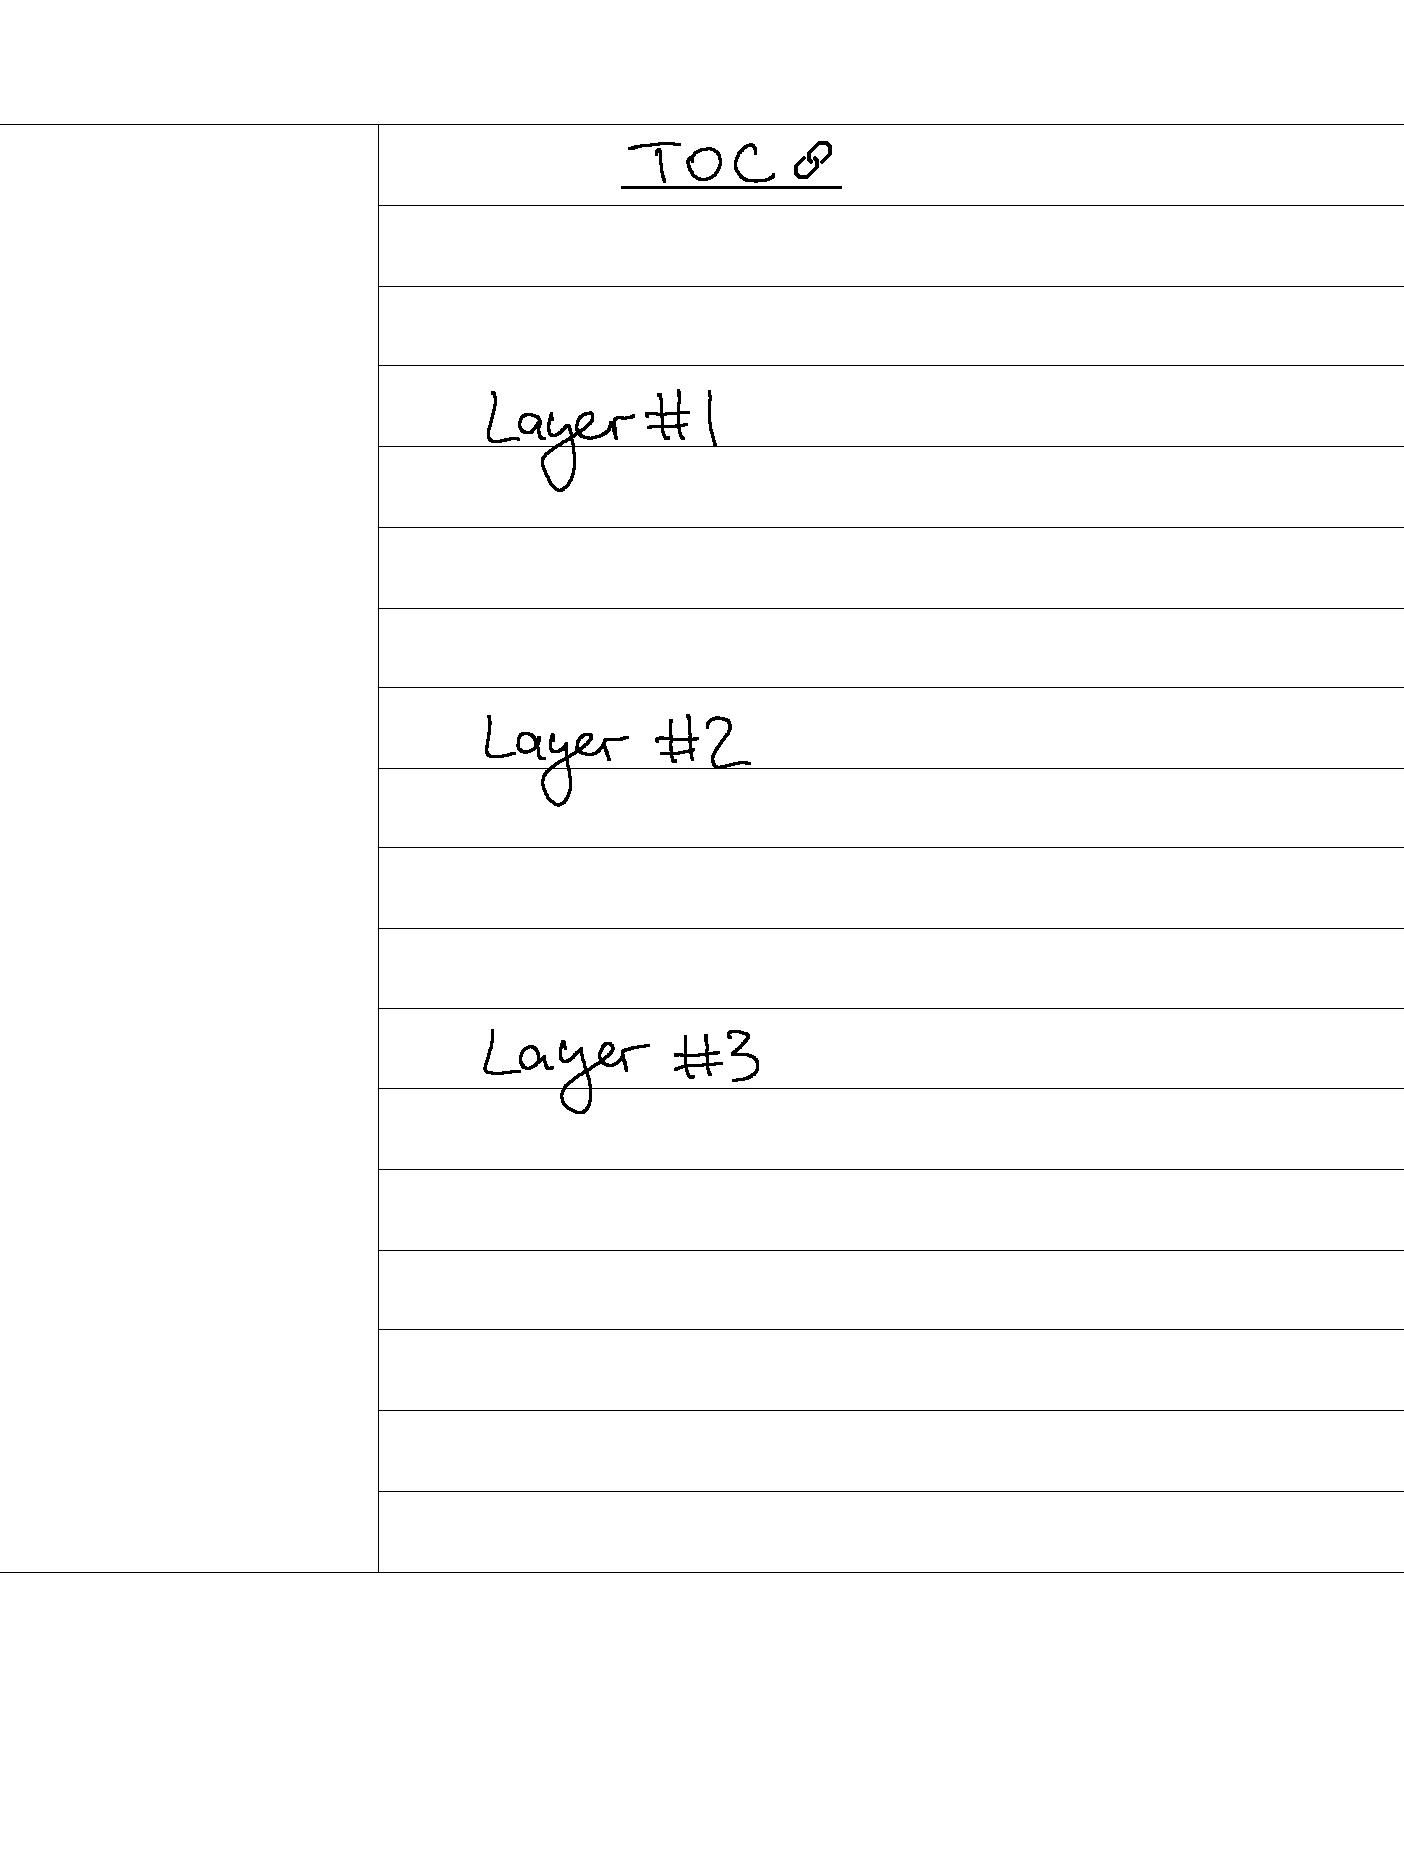 TOC
Layer #1
Layer #2
Layer #3